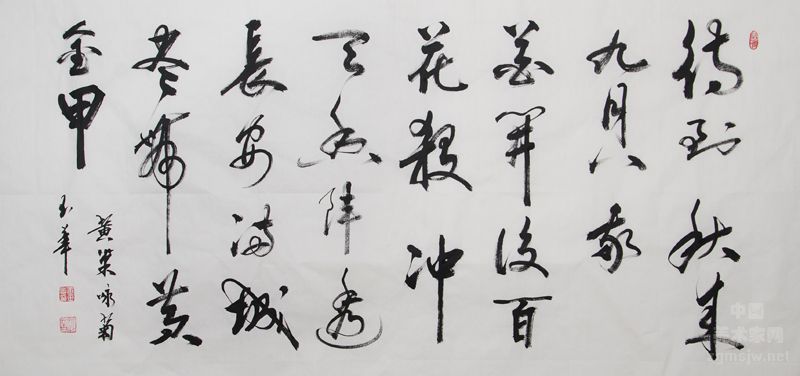 待到秋来
九月八我
花開後百
花殺冲
天香阵透
長安满城
盡帶黄
金甲
黄巢咏菊
玉華
中国
美术家网
zgmsjw.net